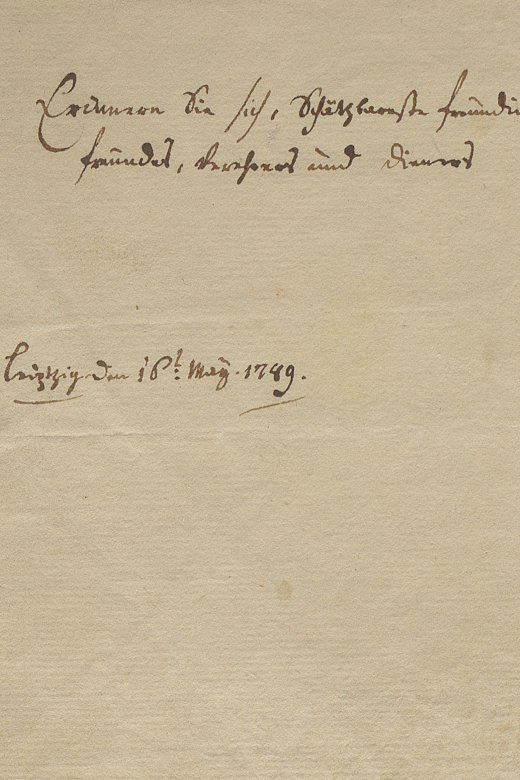 Erinnern Sie sich, Schätzbareste freündi
freündes, Verehrers und dieners
Leipzig den 16t May. 1789.